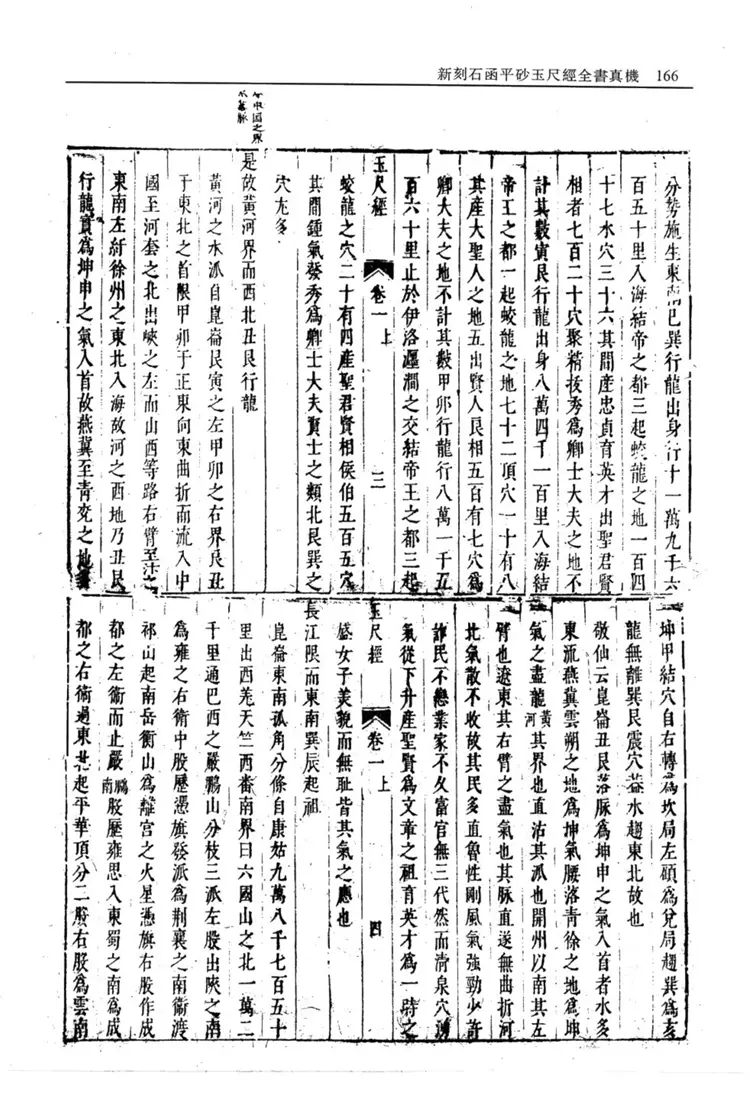 新刻石函平砂玉尺經全書真機 166
分勢施生東南巳巽行龍出身行十一萬九千六
百五十里入海結帝之都三起蛟龍之地一百四
十七水穴三十六其間產忠貞育英才出聖君賢
相者七百二十穴聚精拔秀爲卿士大夫之地不
計其數寅艮行龍出身八萬四千一百里入海結
帝王之都一起蛟龍之地七十二頂穴一十有八
其產大聖人之地五出賢人良相五百有七穴爲
卿大夫之地不計其數甲卯行龍行八萬一千五
百六十里止於伊洛瀍澗之交結帝王之都三起
玉尺經 卷一上 三
蛟龍之穴二十有四產聖君賢相侯伯五百五穴
其間鍾氣發秀爲卿士大夫賢士之類北艮巽之
穴尤多
中國之界
脉
是故黃河界而西北丑艮行龍
黃河之水派自崑崙艮寅之左甲卯之右界艮丑
于東北之首限甲卯于正東向東曲折而流入中
國至河套之北出峽之左而山西等路右臂至汴之
東南左紆徐州之東北入海故河之西地乃丑艮
行龍實爲坤申之氣入首故燕冀至青兗之地
坤甲結穴自右轉爲坎局左顧爲兌局趨巽爲亥
龍無離巽艮震穴葢水趨東北故也
敬仙云崑崙丑艮落脉爲坤申之氣入首者水多
東流燕冀雲朔之地爲坤氣腰落青徐之地爲坤
氣之盡龍黃河其界也直沽其派也開州以南其左
臂也遼東其右臂之盡氣也其脉直遂無曲折河
北氣散不收故其民多直魯性剛風氣強勁少許
詐民不戀業家不久富官無三代然而清泉穴湧
氣從下升產聖賢爲文章之祖育英才爲一時之
玉尺經 卷一上 四
盛女子美貌而無耻皆其氣之應也
長江限而東南巽辰起祖
崑崙東南孤角分條自康姑九萬八千七百五十
里出西羌天竺西番南界曰六國山之北一萬二
千里通巴西之嚴鵬山分枝三派左股出陝之南
爲雍之右衛中股歷憑旗發派爲荆襄之南衛渡
祁山起南岳衡山爲離宮之火星憑旗右股作成
都之左衛而止嚴鵬南股歷雍思入東蜀之南爲成
都之右衛過東北起平華頂分二股右股爲雲南